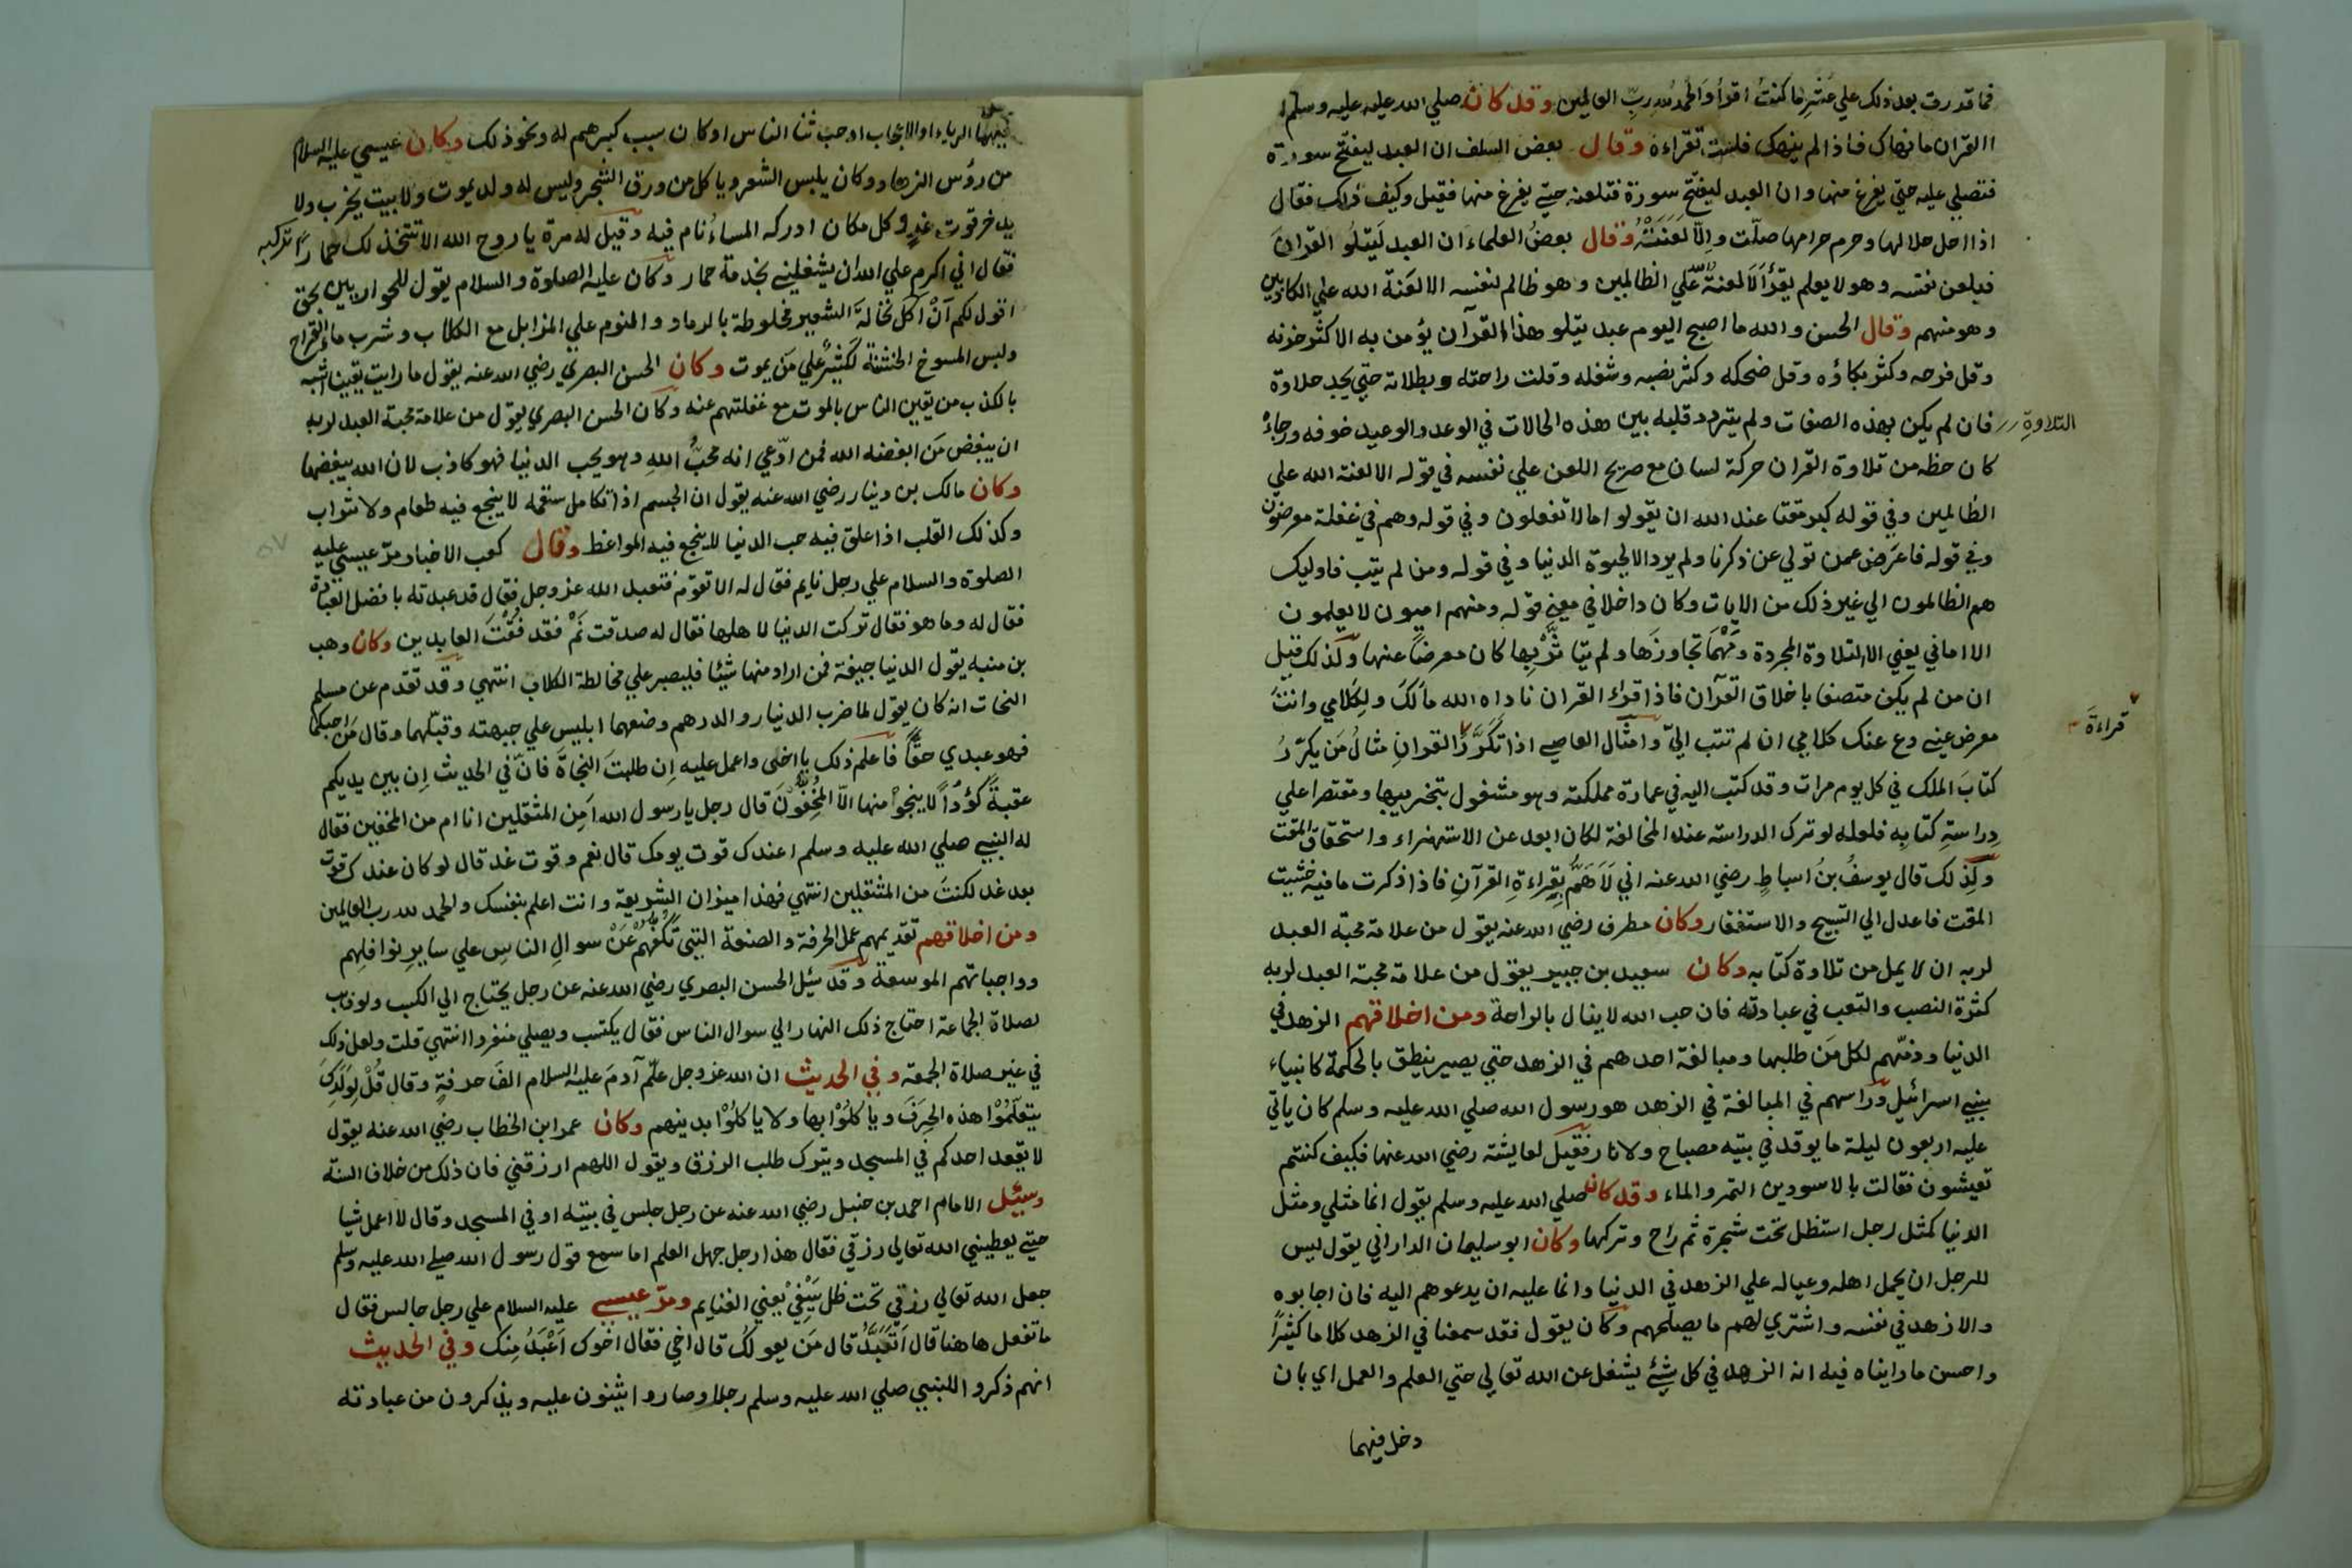 فما قدرت بعد ذلك علي عُشر ما كنتُ اقرأُ والحمدُ للهِ ربِّ العالمين وقد كان صلي الله عليه وسلم
القران ما نهاك فاذا لم ينهك فلست تقراءه وقال بعض السلف ان العبد ليفتح سورة
فتصلي عليه حتي يفرغ منها وان العبد ليفتح سورة فتلعنه حتي يفرغ منها فقيل وكيف ذلك فقال
اذا احل حلالها وحرم حرامها صلّت والاّ لعنته وقال بعضُ العلماء ان العبد لَيتلُو القرانَ
فيلعن نفسه وهو لا يعلم يقرأ الا لعنة الله علي الظالمين وهو ظالم لنفسه الا لعنة الله علي الكاذبين
وهو منهم وقال الحسن والله ما اصبح اليوم عبد يتلو هذا القرآن يؤمن به الا كثر حزنه
وقل فرحه وكثر بكاؤه وقل ضحكه وكثر نصبه وشغله وقلت راحته وبطلاته حتي يجد حلاوة
التلاوةِ
فان لم يكن بهذه الصفات ولم يتردد قلبه بين هذه الحالات في الوعد والوعيد خوفه ورجاءه
كان حظه من تلاوة القران حركة لسان مع صريح اللعن علي نفسه في قوله الا لعنة الله علي
الظالمين وفي قوله كبر مقتا عند الله ان تقولوا ما لا تفعلون وفي قوله وهم في غفلة معرضون
وفي قوله فاعرض عمن تولي عن ذكرنا ولم يرد الا الحيوة الدنيا وفي قوله ومن لم يتب فاوليك
هم الظالمون الي غير ذلك من الايات وكان داخلا في معني قوله ومنهم اميون لا يعلمون
الا اماني يعني الا التلاوة المجردة ومهما تجاوزها ولم يتاثّر بها كان معرضا عنها ولذلك قيل
ان من لم يكن متصفا باخلاق القرآن فاذا قراء القران ناداه الله مالَكَ ولِكَلامي وانتَ
قراءةَ
معرض عني دع عنك كلامي ان لم تتب اليّ وامثال العاصي اذا تكرّرُ القران مثالُ مَن يكرّرُ
كتابَ الملك في كل يوم مرات وقد كتب اليه في عمارة مملكته وهو مشغول بتخريبها ومقتصرا علي
دراسةِ كتابِه فلعله لو ترك الدراسة عند المخالفة لكان ابعد عن الاستهزاء واستحقاق المقت
وكذلك قال يوسفُ بنُ اسباطٍ رضي الله عنه اني لَاَهَمُّ بِقراءةِ القرآنِ فاذا ذكرت ما فيه خشيت
المقت فاعدل الي التسبيح والاستغفار وكان مطرف رضي الله عنه يقول من علامة محبة العبد
لربه ان لا يمل من تلاوة كتابه وكان سعيد بن جبير يقول من علامة محبة العبد لربه
كثرة النصب والتعب في عبادته فان حب الله لا ينال بالراحة ومن اخلاقهم الزهد في
الدنيا وذمّهم لكل مَن طلبها ومبالغة احدهم في الزهد حتي يصير ينطق بالحكمة كانبياء
بني اسرائيل وراسهم في المبالغة في الزهد هو رسول الله صلي الله عليه وسلم كان ياتي
عليه اربعون ليلة ما يوقد في بيته مصباح ولا نار فقيل لعايشة رضي الله عنها فكيف كنتم
تعيشون فقالت بالاسودين التمر والماء وقد كان صلي الله عليه وسلم يقول انما مثلي ومثل
الدنيا كمثل رجل استظل تحت شجرة ثم راح وتركها وكان ابو سليمان الداراني يقول ليس
للرجل ان يحمل اهله وعياله علي الزهد في الدنيا وانما عليه ان يدعوهم اليه فان اجابوه
والا زهد في نفسه واشتري لهم ما يصلحهم وكان يقول فقد سمعنا في الزهد كلاما كثيرًا
واحسن ما راينا فيه انه الزهد في كل شئٍ يشغل عن الله تعالي حتي العلم والعمل اي بان
دخل فيهما
فيهما الرياء او الاعجاب او حب ثنا الناس او كان سبب كبرهم له ونحو ذلك وكان عيسي عليه السلام
من رؤس الزهاد وكان يلبس الشعر وياكل من ورق الشجر وليس له ولد يموت ولا بيت يخرب ولا
يدخر قوت غدٍ وكل مكان ادركه المساءُ نام فيه وقيل له مرة يا روح الله الا تتخذ لك حمارًا تركبه
فقال اني اكرم علي الله ان يشغلني بخدمة حمار وكان عليه الصلوة والسلام يقول للحواريين بحق
اقول لكم اَنْ اكل نخالةَ الشعير مخلوطة بالرماد والنوم علي المزابل مع الكلاب وشرب ماء القراح
ولبس المسوخ الخشنة لَكثيرٌ علي مَن يموت وكان الحسن البصري رضي الله عنه يقول ما رايت يقينا اشبه
بالكذب من يقين الناس بالموت مع غفلتهم عنه وكان الحسن البصري يقول من علامة محبة العبد لربه
ان يبغض مَن ابغضه الله فمن ادّعي انه محبُّ اللهِ وهو يحب الدنيا فهو كاذب لان الله يبغضها
وكان مالك بن دينار رضي الله عنه يقول ان الجسم اذا تكامل سقمه لا ينجع فيه طعام ولا شراب
وكذلك القلب اذا علق فيه حب الدنيا لا ينجع فيه المواعظ وقال كعب الاخبار مرّ عيسي عليه
الصلوة والسلام علي رجل نايم فقال له الا تقوم فتعبد الله عز وجل فقال قد عبدته بافضل العبادة
فقال له وما هو فقال تركت الدنيا لاهلها فقال له صدقت نَمْ فقد فُقْتَ العابدين وكان وهب
بن منبه يقول الدنيا جيفة فمن اراد منها شيئا فليصبر علي مخالطة الكلاب انتهي وقد تقدم عن مسلم
النحات انه كان يقول لما ضرب الدنيار والدرهم وضعهما ابليس علي جبهته وقبّلهما وقال مَن احبكما
فهو عبدي حقًّا فاعلم ذلك يا اخي واعمل عليه اِن طلبتَ النجاةَ فانّ في الحديث اِن بين يديكم
عقبةً كؤُدًا لا ينجوا منها الّا المُخِفُّونَ قال رجل يا رسول الله اَمِن المثقلين انا ام من المخفين فقال
له النبي صلي الله عليه وسلم اعندك قوت يومك قال نعم وقوت غد قال لو كان عندك قوت
بعد غد لكنتَ من المثقلين انتهي فهذا ميزان الشريعة وانت اعلم بنفسك والحمد لله رب العالمين
ومن اخلاقهم تقديمهم عمل الحرفة والصنعة التي تكفّهُم عَنْ سوالِ الناسِ علي سايرِ نوافلِهم
وواجباتهم الموسعة وقد سئِل الحسن البصري رضي الله عنه عن رجل يحتاج الي الكسب ولو ذهب
لصلاة الجماعة احتاج ذلك النهار الي سوال الناس فقال يكتسب ويصلي منفردا انتهي قلت ولعل ذلك
في غير صلاة الجمعة وفي الحديث ان الله عز وجل علّم آدمَ عليه السلام الفَ حرفةٍ وقال قُلْ لِوَلَدِكَ
يتعلّمُوْا هذه الحِرَفَ وياكلُوْا بها ولا ياكلُوْا بدينهم وكان عمر ابن الخطاب رضي الله عنه يقول
لا يقعد احدكم في المسجد ويترك طلب الرزق ويقول اللهم ارزقني فان ذلك من خلاف السنة
وسئِل الامام احمد بن حنبل رضي الله عنه عن رجل جلس في بيته او في المسجد وقال لا اعمل شيا
حتي يعطيني الله تعالي رزقي فقال هذا رجل جهل العلم اما سمع قول رسول الله صلي الله عليه وسلم
جعل الله تعالي رزقي تحت ظل سَيْفِيْ يعني الغنايم ومرّ عيسي عليه السلام علي رجل جالس فقال
ما تفعل هاهنا قال اَتَعبَّدُ قال مَن يعولك قال اخي فقال اخوك اَعْبَدُ مِنك وفي الحديث
انهم ذكروا للنبي صلي الله عليه وسلم رجلا وصاروا يثنون عليه ويذكرون من عبادته